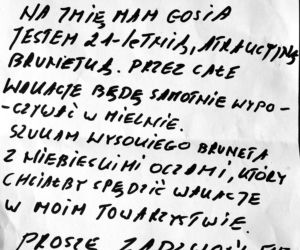 NA IMIĘ MAM GOSIA
JESTEM 21-letnią, ATRAKCYJNĄ
BRUNETKĄ. PRZEZ CAŁE
WAKACJE BĘDĘ SAMOTNIE WYPO-
-CZYWAĆ W MIELNIE.
SZUKAM WYSOKIEGO BRUNETA
Z NIEBIESKIMI OCZAMI, KTÓRY
CHCIAŁBY SPĘDZIĆ WAKACJE
W MOIM TOWARZYSTWIE.
PROSZĘ